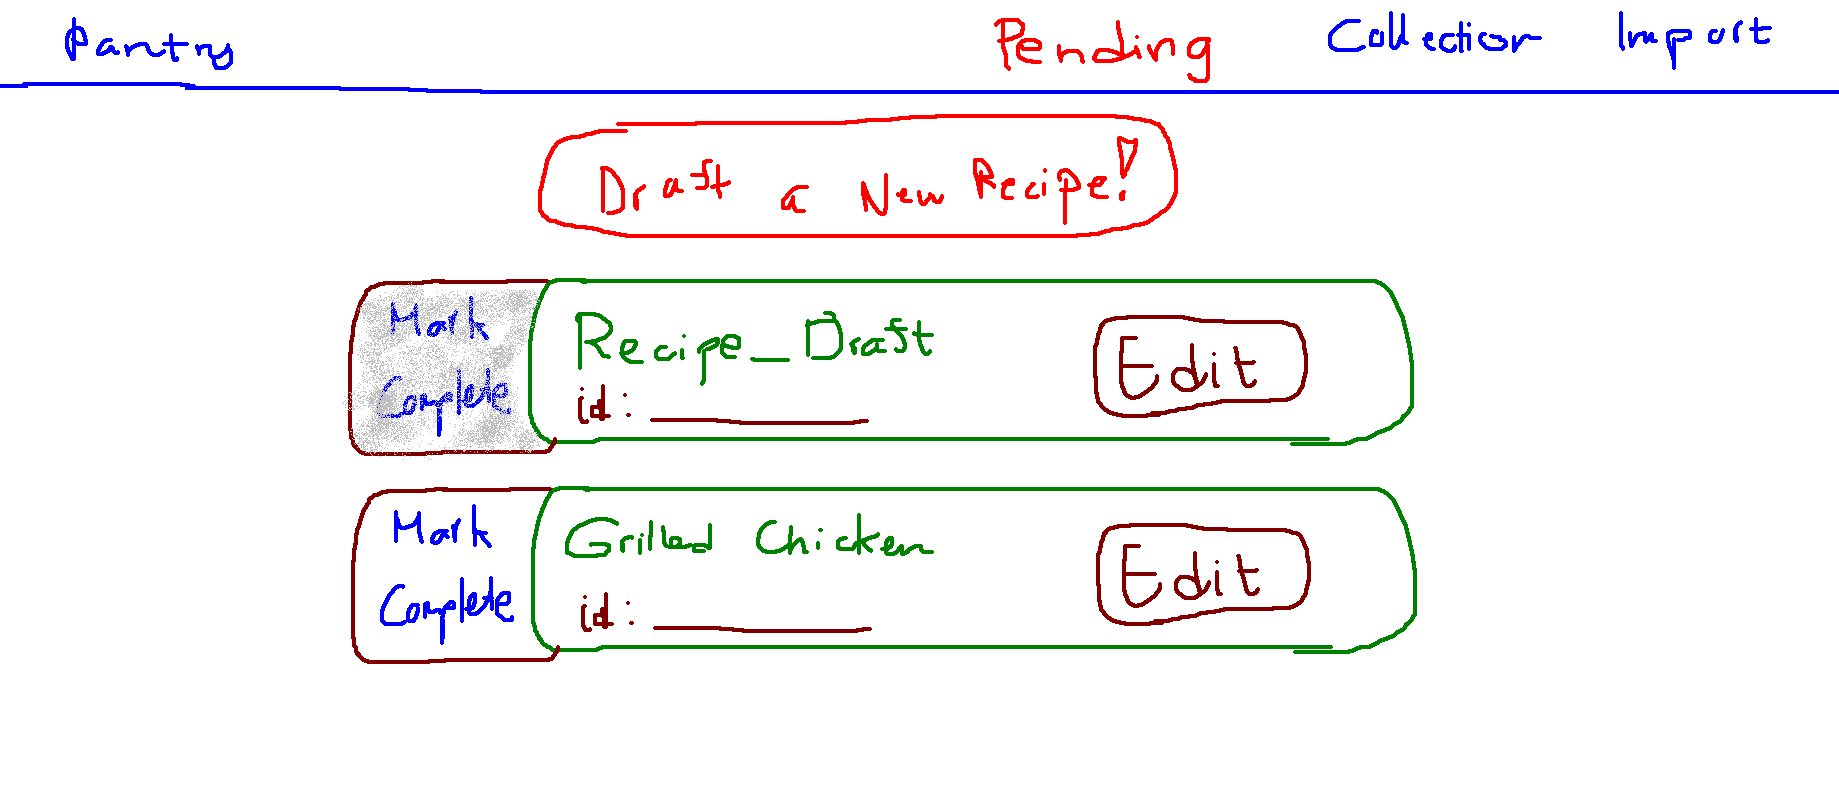 Pantry Pending Collection Import
Draft a New Recipe!
Mark
Complete
Recipe_Draft
id: ________
Edit
Mark
Complete
Grilled Chicken
id: ________
Edit